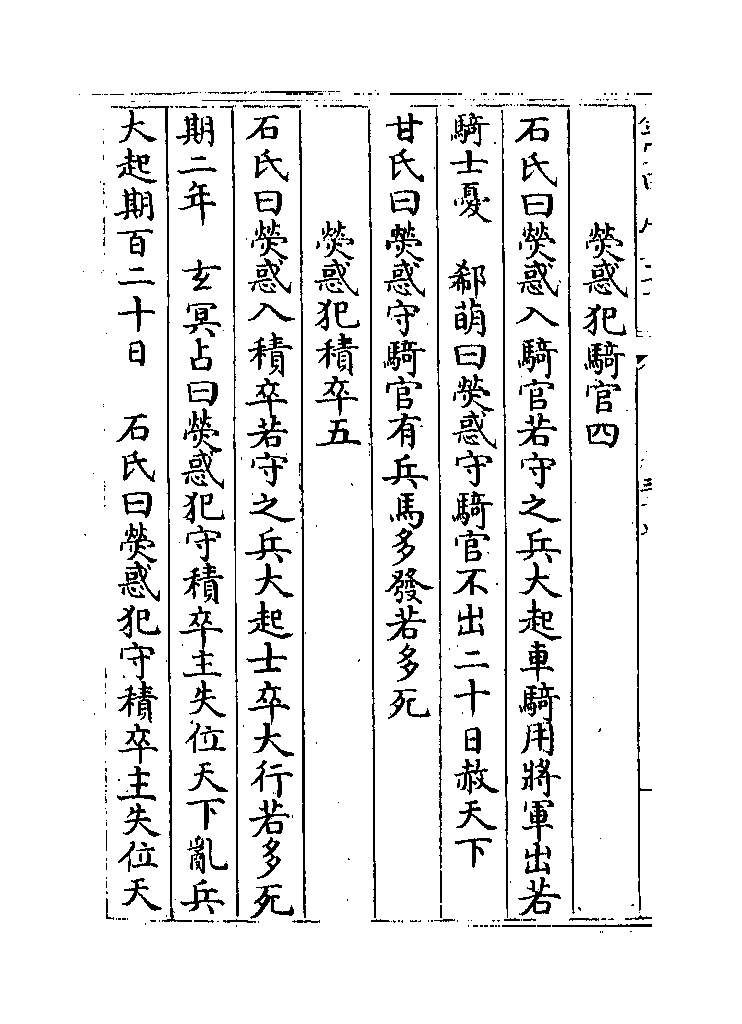 熒惑犯騎官四
石氏曰熒惑入騎官若守之兵大起車騎用將軍出若
騎士憂　郗萌曰熒惑守騎官不出二十日赦天下
甘氏曰熒惑守騎官有兵馬多發若多死
熒惑犯積卒五
石氏曰熒惑入積卒若守之兵大起士卒大行若多死
期二年　玄冥占曰熒惑犯守積卒主失位天下亂兵
大起期百二十日　石氏曰熒惑犯守積卒主失位天